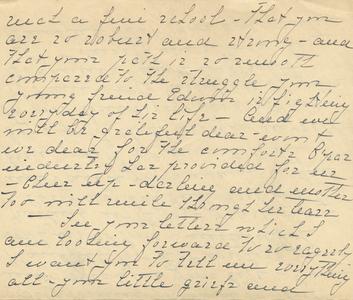 such a fine school - that you
are so robust and strong - and
that your path is so smooth
compared to the struggle your
young friend Edwin is fighting
every day of his life - and we
will be grateful dear - won't
we dear for the comforts Papa's
industry has provided for us
- Cheer up - darling and mother
too will smile through her tears
- In your letters which I
am looking forward to so eagerly
I want you to tell me everything
all - your little griefs and